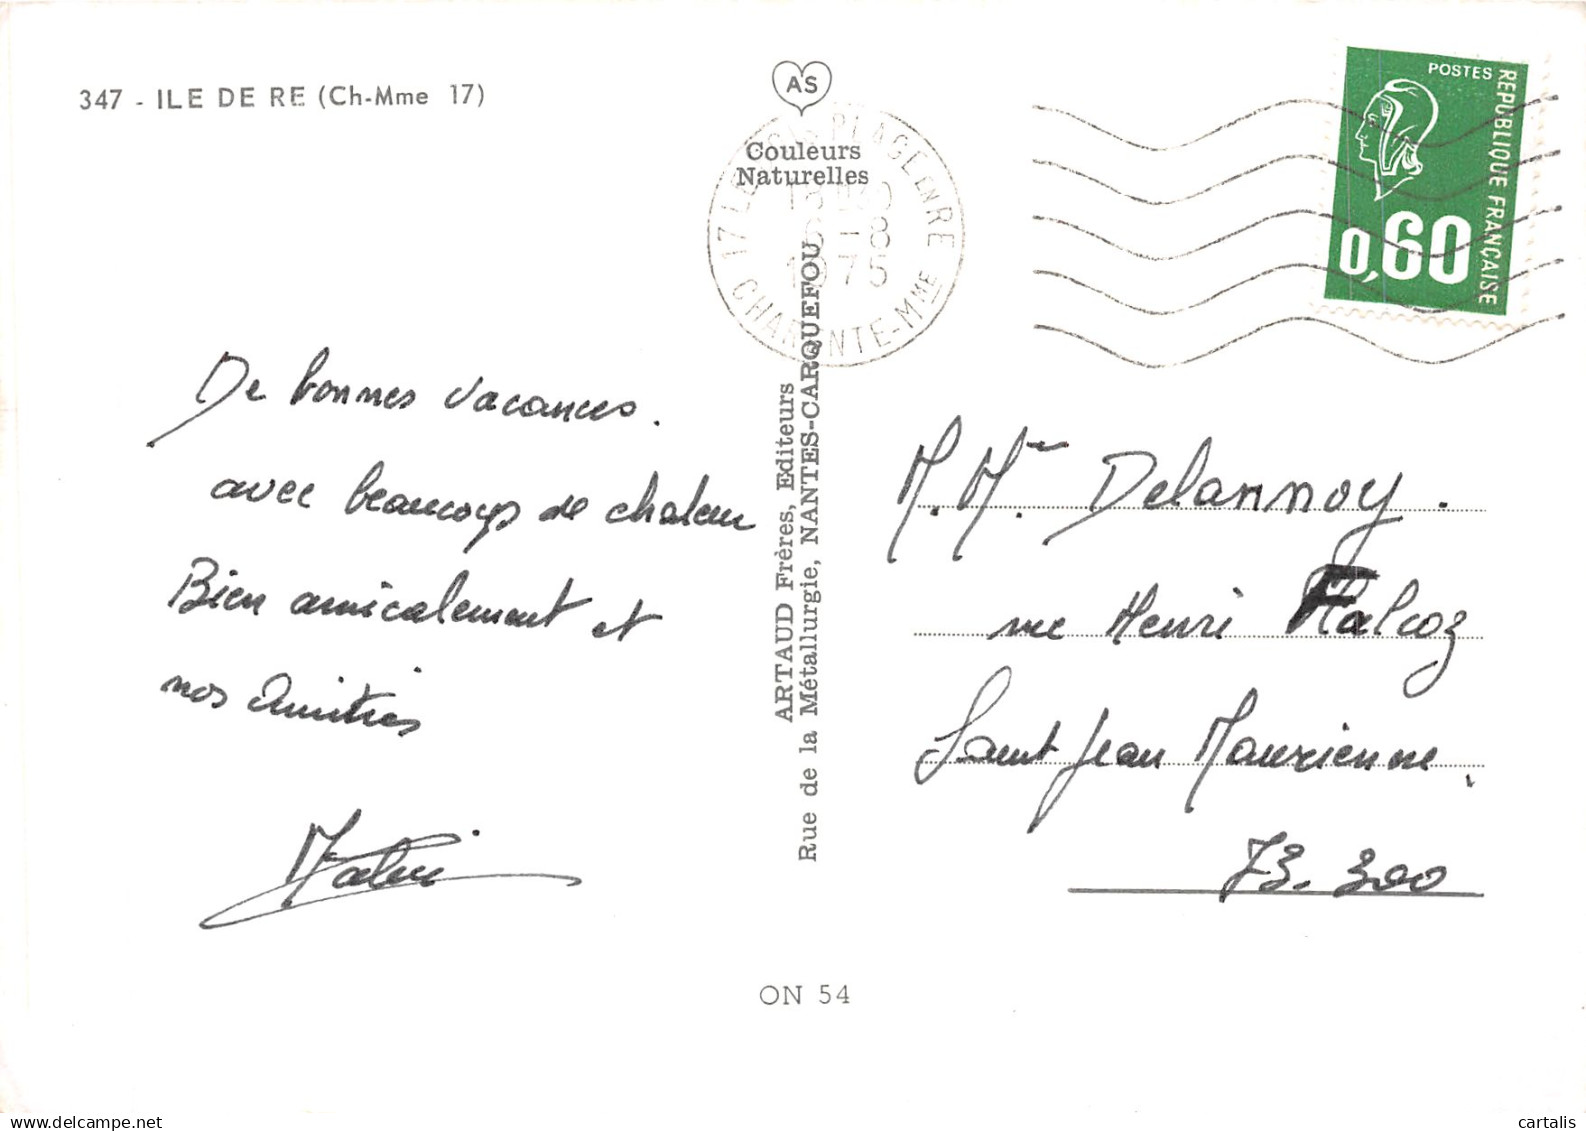 347 - ILE DE RE (Ch-Mme 17)
AS
Couleurs
Naturelles
17 PLAGE EN RE
6-8
1975
CHARENTE-MME
POSTES
REPUBLIQUE FRANÇAISE
0,60
De bonnes vacances.
avec beaucoup de chaleur
Bien amicalement et
nos Amitiés
ARTAUD Frères, Editeurs
Rue de la Métallurgie, NANTES-CARQUEFOU
M. Me Delannoy.
rue Henri Falcoz
Saint Jean Maurienne.
73.300
ON 54
delcampe.net
cartalis